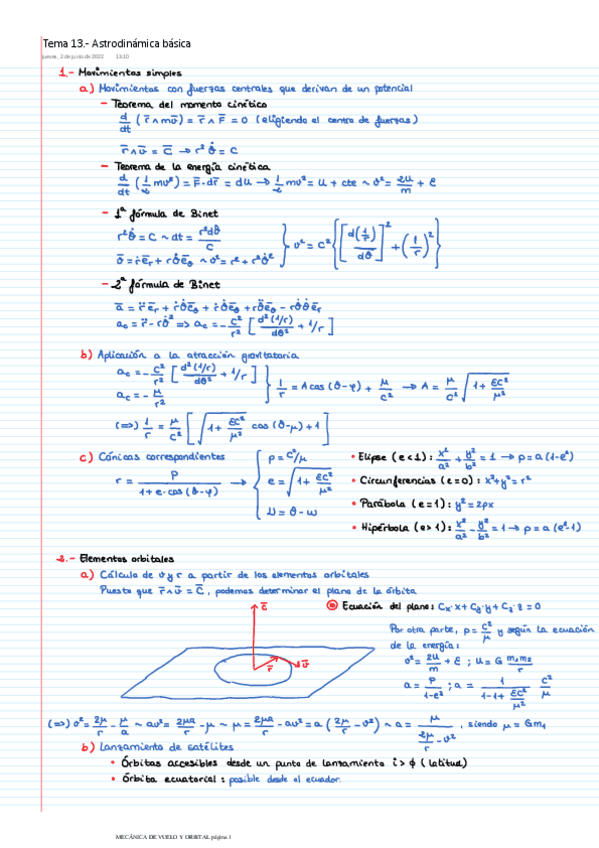 Tema 13.- Astrodinámica básica
jueves, 2 de junio de 2022 13:10
1.- Movimientos simples
a) Movimientos con fuerzas centrales que derivan de un potencial
- Teorema del momento cinético
d/dt (r̄ ∧ mῡ) = r̄ ∧ F̄ = 0 (eligiendo el centro de fuerzas)
r̄ ∧ ῡ = C̄ → r² θ̇ = C
- Teorema de la energía cinética
d/dt (1/2 mv²) = F̄·dr̄ = dU → 1/2 mv² = U + cte ~ v² = 2U/m + ε
- 1ª fórmula de Binet
r²θ̇ = C ~ dt = r²dθ/C
ῡ = ṙēr + rθ̇ēθ ~ v² = ṙ² + r²θ̇² } v² = C² { [d(1/r)/dθ]² + (1/r)² }
- 2ª fórmula de Binet
ā = r̈ēr + ṙθ̇ēθ + ṙθ̇ēθ + rθ̈ēθ - rθ̇θ̇ēr
ac = r̈ - rθ̇² => ac = - C²/r² [d²(1/r)/dθ² + 1/r]
b) Aplicación a la atracción gravitatoria
ac = - C²/r² [d²(1/r)/dθ² + 1/r]
ac = - μ/r² } 1/r = A cos (θ-φ) + μ/C² → A = μ/C² √(1 + εC²/μ²)
(=>) 1/r = μ/C² [√(1 + εC²/μ²) cos (θ-μ) + 1]
c) Cónicas correspondientes
r = p / 1 + e·cos (θ-φ) → { p = C²/μ
e = √(1 + εC²/μ²)
υ = θ - ω
• Elipse (e<1): x²/a² + y²/b² = 1 → p = a (1-e²)
• Circunferencias (e=0): x²+y² = r²
• Parábola (e=1): y² = 2px
• Hipérbola (e>1): x²/a² - y²/b² = 1 → p = a (e²-1)
2.- Elementos orbitales
a) Cálculo de v y r a partir de los elementos orbitales
Puesto que r̄ ∧ ῡ = C̄, podemos determinar el plano de la órbita
C̄
r̄
ῡ
Ecuación del plano: Cx·x + Cy·y + Cz·z = 0
Por otra parte, p = C²/μ y según la ecuación
de la energía:
v² = 2U/m + ε ; U = G m₁m₂/r
a = p/1-e² ; a = 1/(1-1+ εC²/μ²) C²/μ
(=>) v² = 2μ/r - μ/a ~ av² = 2μa/r - μ ~ μ = 2μa/r - av² = a (2μ/r - v²) ~ a = μ/(2μ/r - v²), siendo μ = Gm₁
b) Lanzamiento de satélites
• Órbitas accesibles desde un punto de lanzamiento i > ϕ (latitud)
• Órbita ecuatorial: posible desde el ecuador.
MECÁNICA DE VUELO Y ORBITAL página 1